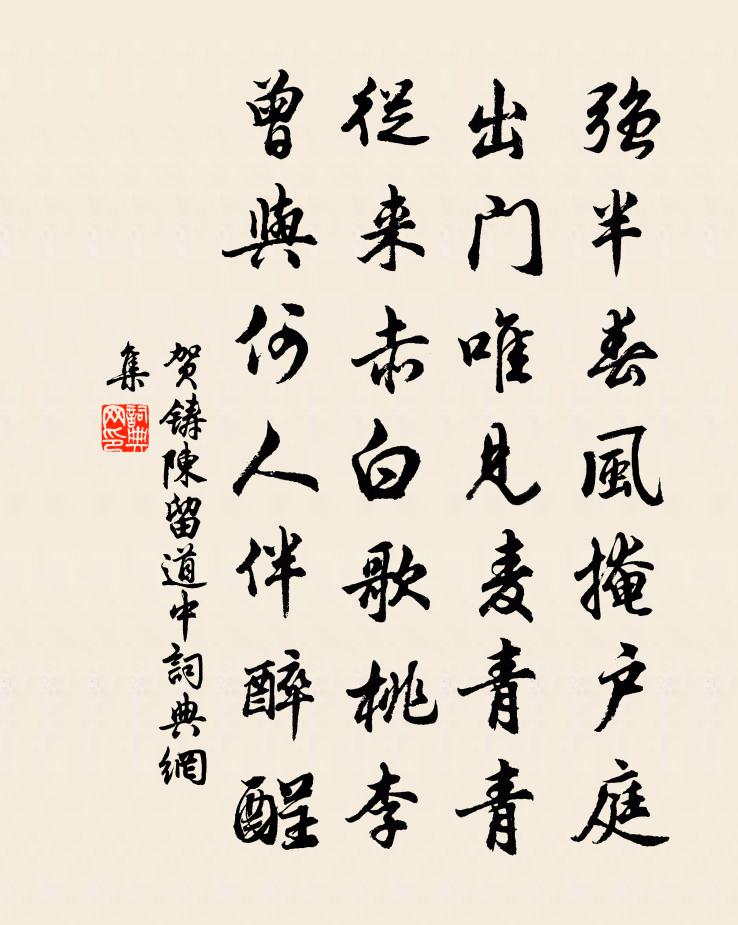 強半春風掩户庭
出門唯見麦青青
從来赤白歌桃李
曾與何人伴醉醒
贺鑄陳留道中詞典網
集
詞典
网印